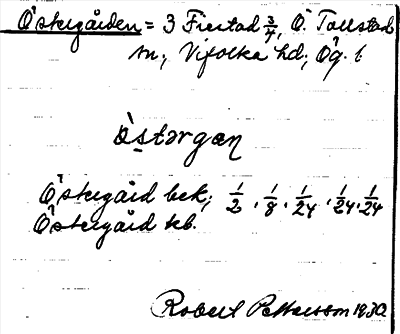 Östergården = 3 Fivlstad 3/4, Ö. Tollstad
m; Vifolka hd; Ög. l
Östərgæɳ
Östergård bek; 1/2, 1/8, 1/24, 1/24, 1/24
Östergård kb.
Robert Pettersson 1930